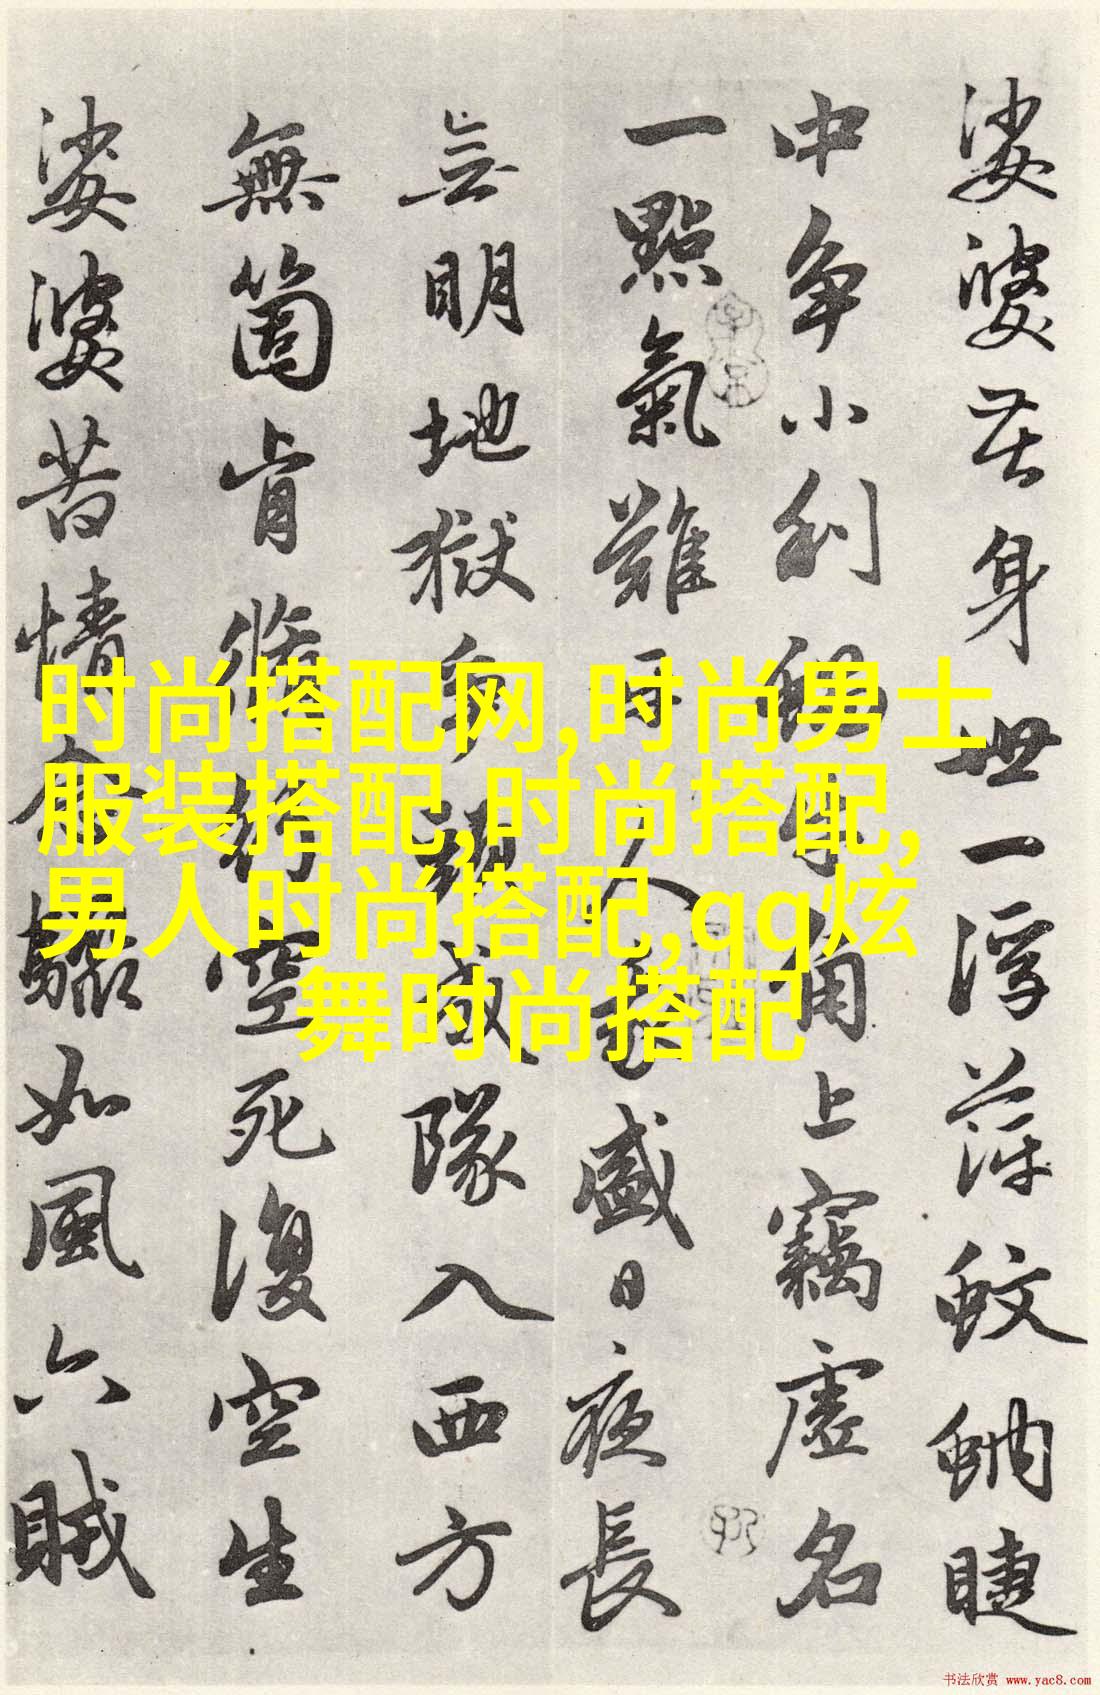 娑婆苦身世一浮萍蚊蚋睫
中争小利蝸牛角上竊虛名
一點氣難平人我盛日夜長
無明地獄爭頭成隊入西方
無箇肯修行空死復空生
娑婆苦情念驟如風六賊
时尚搭配网,时尚男士
服装搭配,时尚搭配,
男人时尚搭配,qq炫
舞时尚搭配
书法欣赏 www.yac8.com